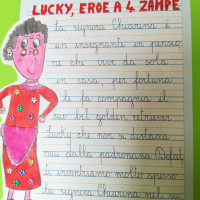 LUCKY, EROE A 4 ZAMPE
La signora Chiarina è
un insegnante in pensio
ne che vive da sola
in casa, per fortuna
le fa compagnia il
suo bel golden retriever
Lucky che non si distacca
mai dalla padroncina.
li incontriamo molto spesso
la signora Chiarina nel suo